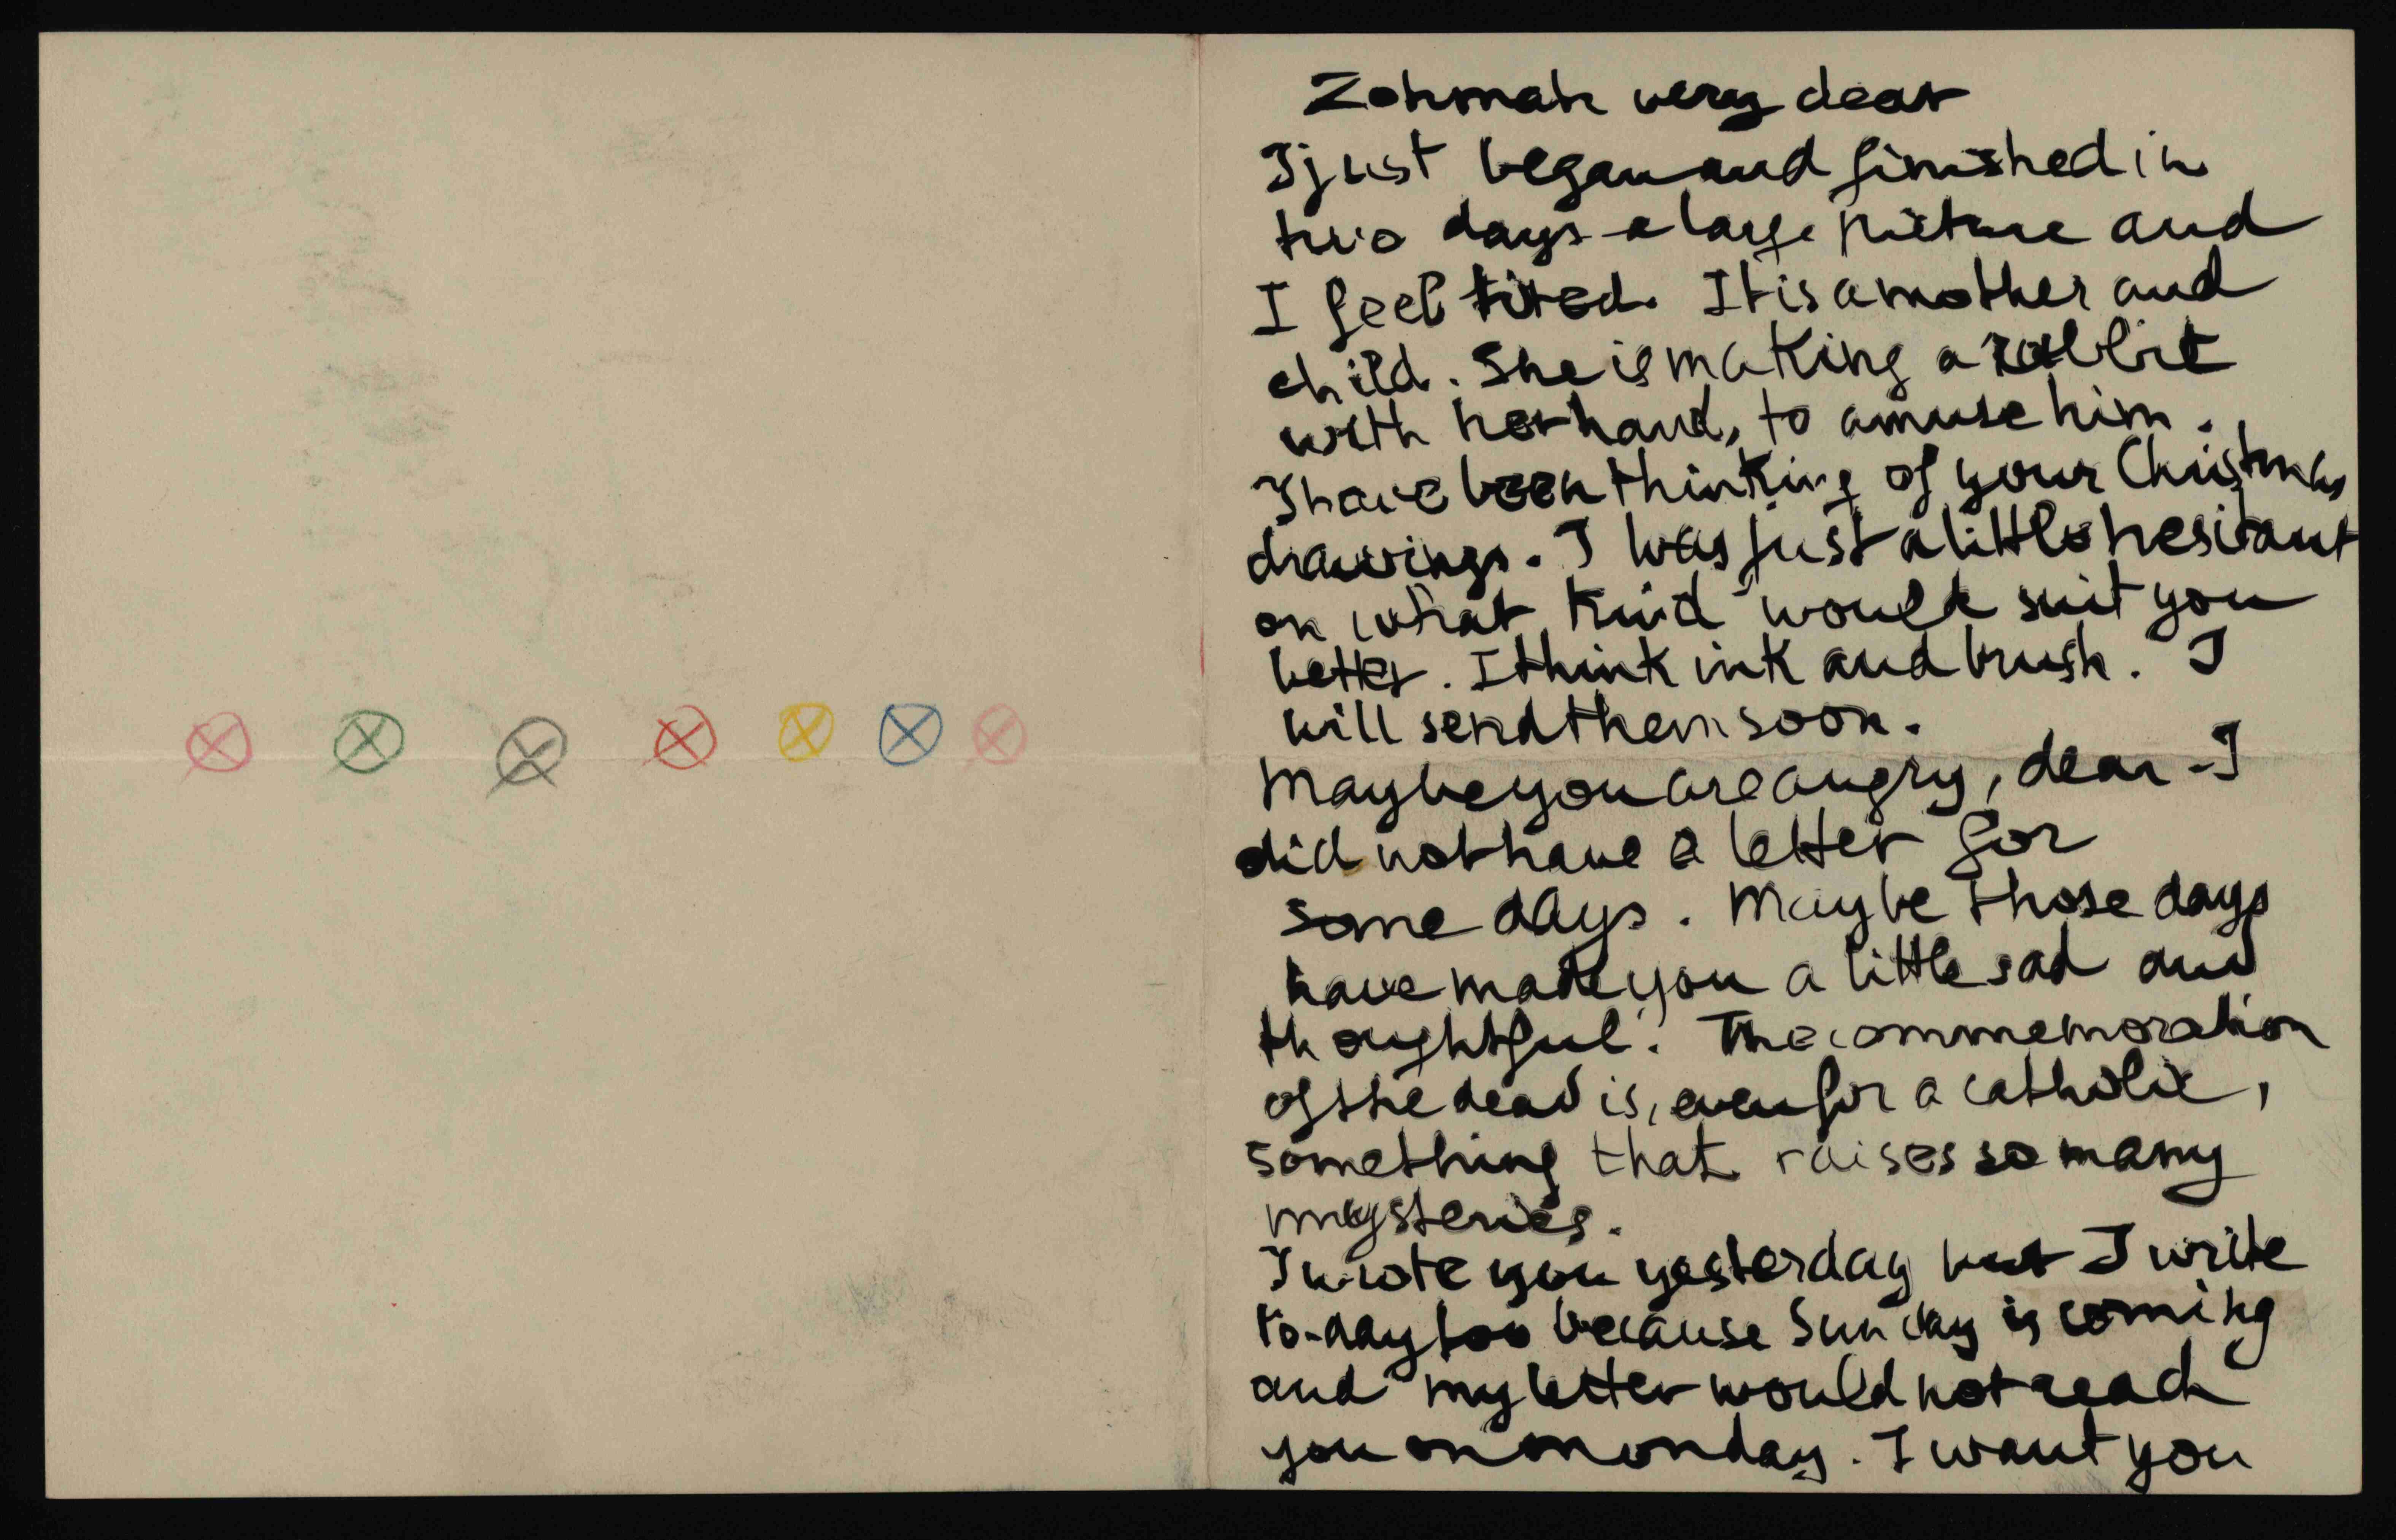 Zohmah very dear
I just began and finished in
two days a large picture and
I feel tired. It is a mother and
child. She is making a rabbit
with her hand, to amuse him.
I have been thinking of your Christmas
drawings. I was just a little hesitant
on what kind would suit you
better. I think ink and brush. I
will send them soon.
Maybe you are angry, dear - I
did not have a letter for
some days. Maybe those days
have made you a little sad and
thoughtful. The commemoration
of the dead is, even for a catholic,
something that raises so many
mysteries.
I wrote you yesterday but I write
to-day too because Sunday is coming
and my letter would not reach
you on monday. I want you